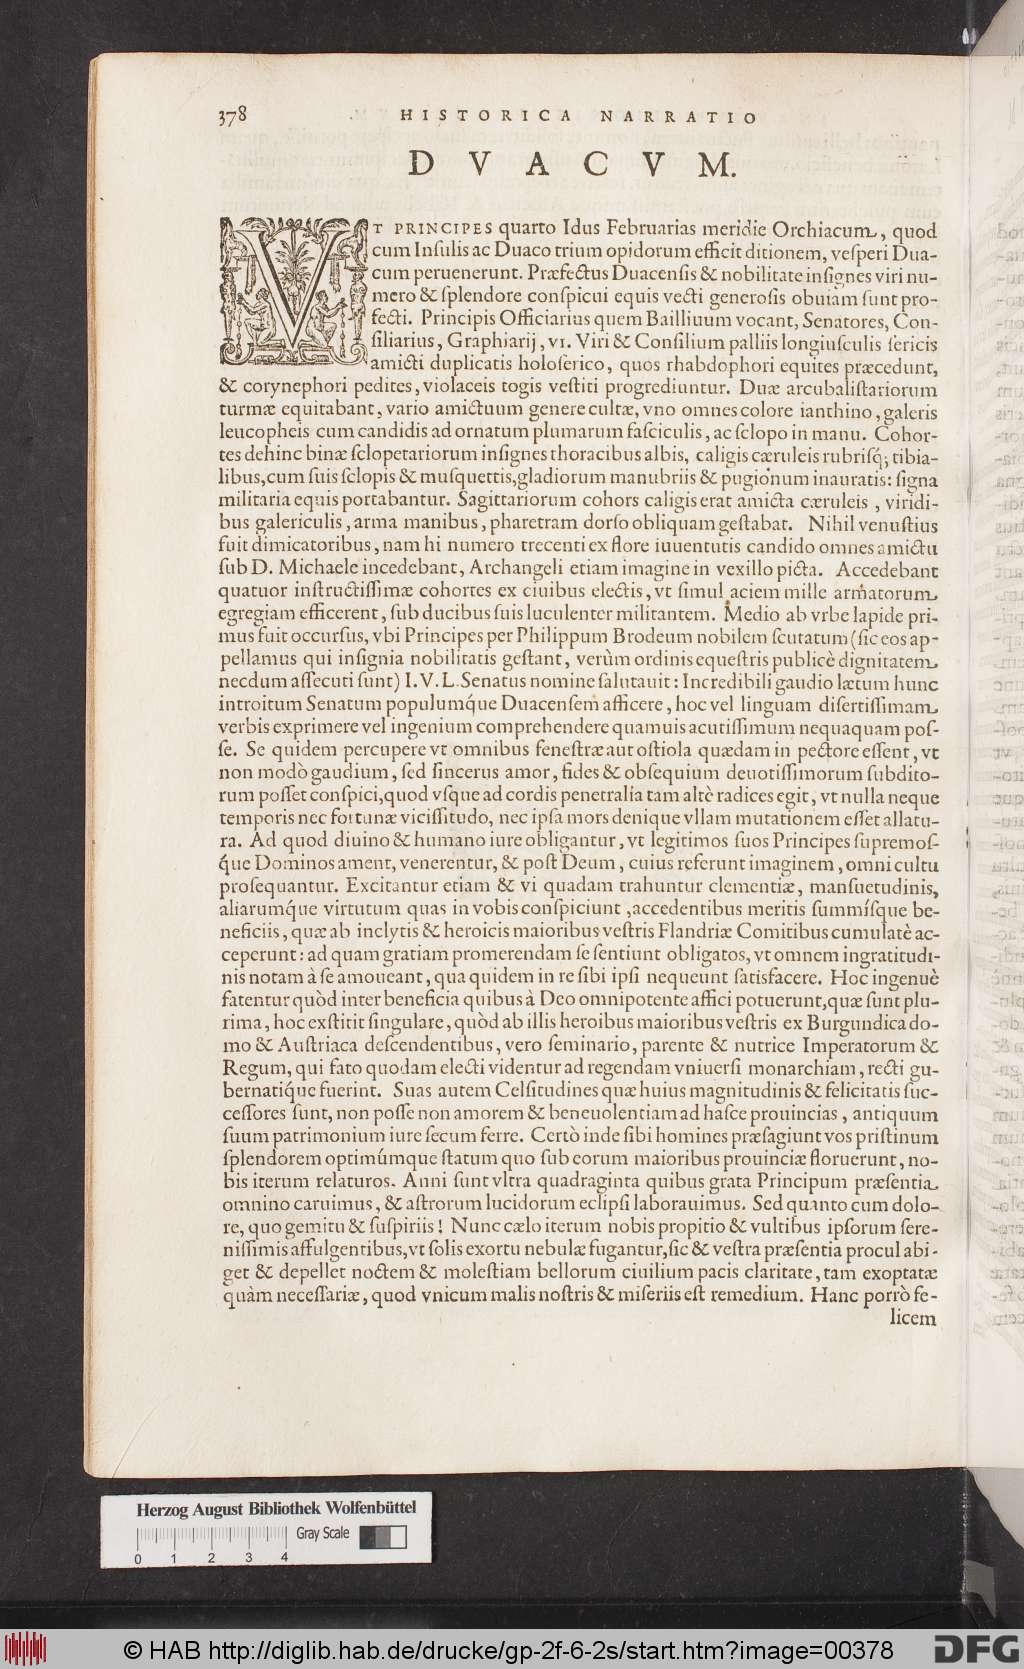 378 HISTORICA NARRATIO
DVACVM.
VT PRINCIPES quarto Idus Februarias meridie Orchiacum, quod
cum Inſulis ac Duaco trium opidorum efficit ditionem, veſperi Dua-
cum peruenerunt. Præfectus Duacenſis & nobilitate inſignes viri nu-
mero & ſplendore conſpicui equis vecti generoſis obuiàm ſunt pro-
fecti. Principis Officiarius quem Bailliuum vocant, Senatores, Con-
ſiliarius, Graphiarij, vı. Viri & Conſilium palliis longiuſculis ſericis
amicti duplicatis holoſerico, quos rhabdophori equites præcedunt,
& corynephori pedites, violaceis togis veſtiti progrediuntur. Duæ arcubaliſtariorum
turmæ equitabant, vario amictuum genere cultæ, vno omnes colore ianthino, galeris
leucopheis cum candidis ad ornatum plumarum faſciculis, ac ſclopo in manu. Cohor-
tes dehinc binæ ſclopetariorum inſignes thoracibus albis, caligis cæruleis rubriſq́; tibia-
libus, cum ſuis ſclopis & muſquettis, gladiorum manubriis & pugionum inauratis: ſigna
militaria equis portabantur. Sagittariorum cohors caligis erat amicta cæruleis, viridi-
bus galericulis, arma manibus, pharetram dorſo obliquam geſtabat. Nihil venuſtius
fuit dimicatoribus, nam hi numero trecenti ex flore iuuentutis candido omnes amictu
ſub D. Michaele incedebant, Archangeli etiam imagine in vexillo picta. Accedebant
quatuor inſtructiſſimæ cohortes ex ciuibus electis, vt ſimul aciem mille armatorum
egregiam efficerent, ſub ducibus ſuis luculenter militantem. Medio ab vrbe lapide pri-
mus fuit occurſus, vbi Principes per Philippum Brodeum nobilem ſcutatum (ſic eos ap-
pellamus qui inſignia nobilitatis geſtant, verùm ordinis equeſtris publicè dignitatem
necdum aſſecuti ſunt) I. V. L. Senatus nomine ſalutauit: Incredibili gaudio lætum hunc
introitum Senatum populumq́ue Duacenſem afficere, hoc vel linguam diſertiſſimam
verbis exprimere vel ingenium comprehendere quamuis acutiſſimum nequaquam poſ-
ſe. Se quidem percupere vt omnibus feneſtræ aut oſtiola quædam in pectore eſſent, vt
non modò gaudium, ſed ſincerus amor, fides & obſequium deuotiſſimorum ſubdito-
rum poſſet conſpici, quod vſque ad cordis penetralia tam altè radices egit, vt nulla neque
temporis nec fortunæ viciſſitudo, nec ipſa mors denique vllam mutationem eſſet allatu-
ra. Ad quod diuino & humano iure obligantur, vt legitimos ſuos Principes ſupremoſ-
q́ue Dominos ament, venerentur, & poſt Deum, cuius referunt imaginem, omni cultu
proſequantur. Excitantur etiam & vi quadam trahuntur clementiæ, manſuetudinis,
aliarumq́ue virtutum quas in vobis conſpiciunt, accedentibus meritis ſummíſque be-
neficiis, quæ ab inclytis & heroicis maioribus veſtris Flandriæ Comitibus cumulatè ac-
ceperunt: ad quam gratiam promerendam ſe ſentiunt obligatos, vt omnem ingratitudi-
nis notam à ſe amoueant, qua quidem in re ſibi ipſi nequeunt ſatisfacere. Hoc ingenuè
fatentur quòd inter beneficia quibus à Deo omnipotente affici potuerunt, quæ ſunt plu-
rima, hoc exſtitit ſingulare, quòd ab illis heroibus maioribus veſtris ex Burgundica do-
mo & Auſtriaca deſcendentibus, vero ſeminario, parente & nutrice Imperatorum &
Regum, qui fato quodam electi videntur ad regendam vniuerſi monarchiam, recti gu-
bernatiq́ue fuerint. Suas autem Celſitudines quæ huius magnitudinis & felicitatis ſuc-
ceſſores ſunt, non poſſe non amorem & beneuolentiam ad haſce prouincias, antiquum
ſuum patrimonium iure ſecum ferre. Certò inde ſibi homines præſagiunt vos priſtinum
ſplendorem optimúmque ſtatum quo ſub eorum maioribus prouinciæ floruerunt, no-
bis iterum relaturos. Anni ſunt vltra quadraginta quibus grata Principum præſentia
omnino caruimus, & aſtrorum lucidorum eclipſi laborauimus. Sed quanto cum dolo-
re, quo gemitu & ſuſpiriis! Nunc cælo iterum nobis propitio & vultibus ipſorum ſere-
niſſimis affulgentibus, vt ſolis exortu nebulæ fugantur, ſic & veſtra præſentia procul abi-
get & depellet noctem & moleſtiam bellorum ciuilium pacis claritate, tam exoptatæ
quàm neceſſariæ, quod vnicum malis noſtris & miſeriis eſt remedium. Hanc porrò fe-
licem
Herzog August Bibliothek Wolfenbüttel
Gray Scale
0 1 2 3 4
© HAB http://diglib.hab.de/drucke/gp-2f-6-2s/start.htm?image=00378
DFG